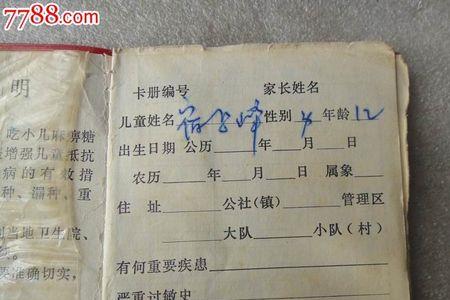 7788.com
明
吃小儿麻痹糖
增强儿童抵抗
病的有效措
种、漏种、重
到当地卫生院、
要准确切实,
卡册编号 家长姓名
儿童姓名 性别 女 年龄 12
出生日期 公历 年 月 日
农历 年 月 日 属象
住 址 公社(镇) 管理区
大队 小队(村)
有何重要疾患
严重过敏史